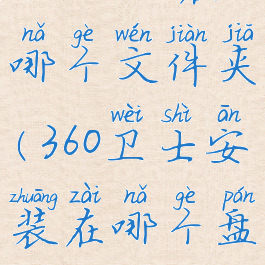 nǎ gè wén jiàn jiā
哪个文件夹
wèi shì ān
(360卫士安
zhuāng zài nǎ gè pán
装在哪个盘